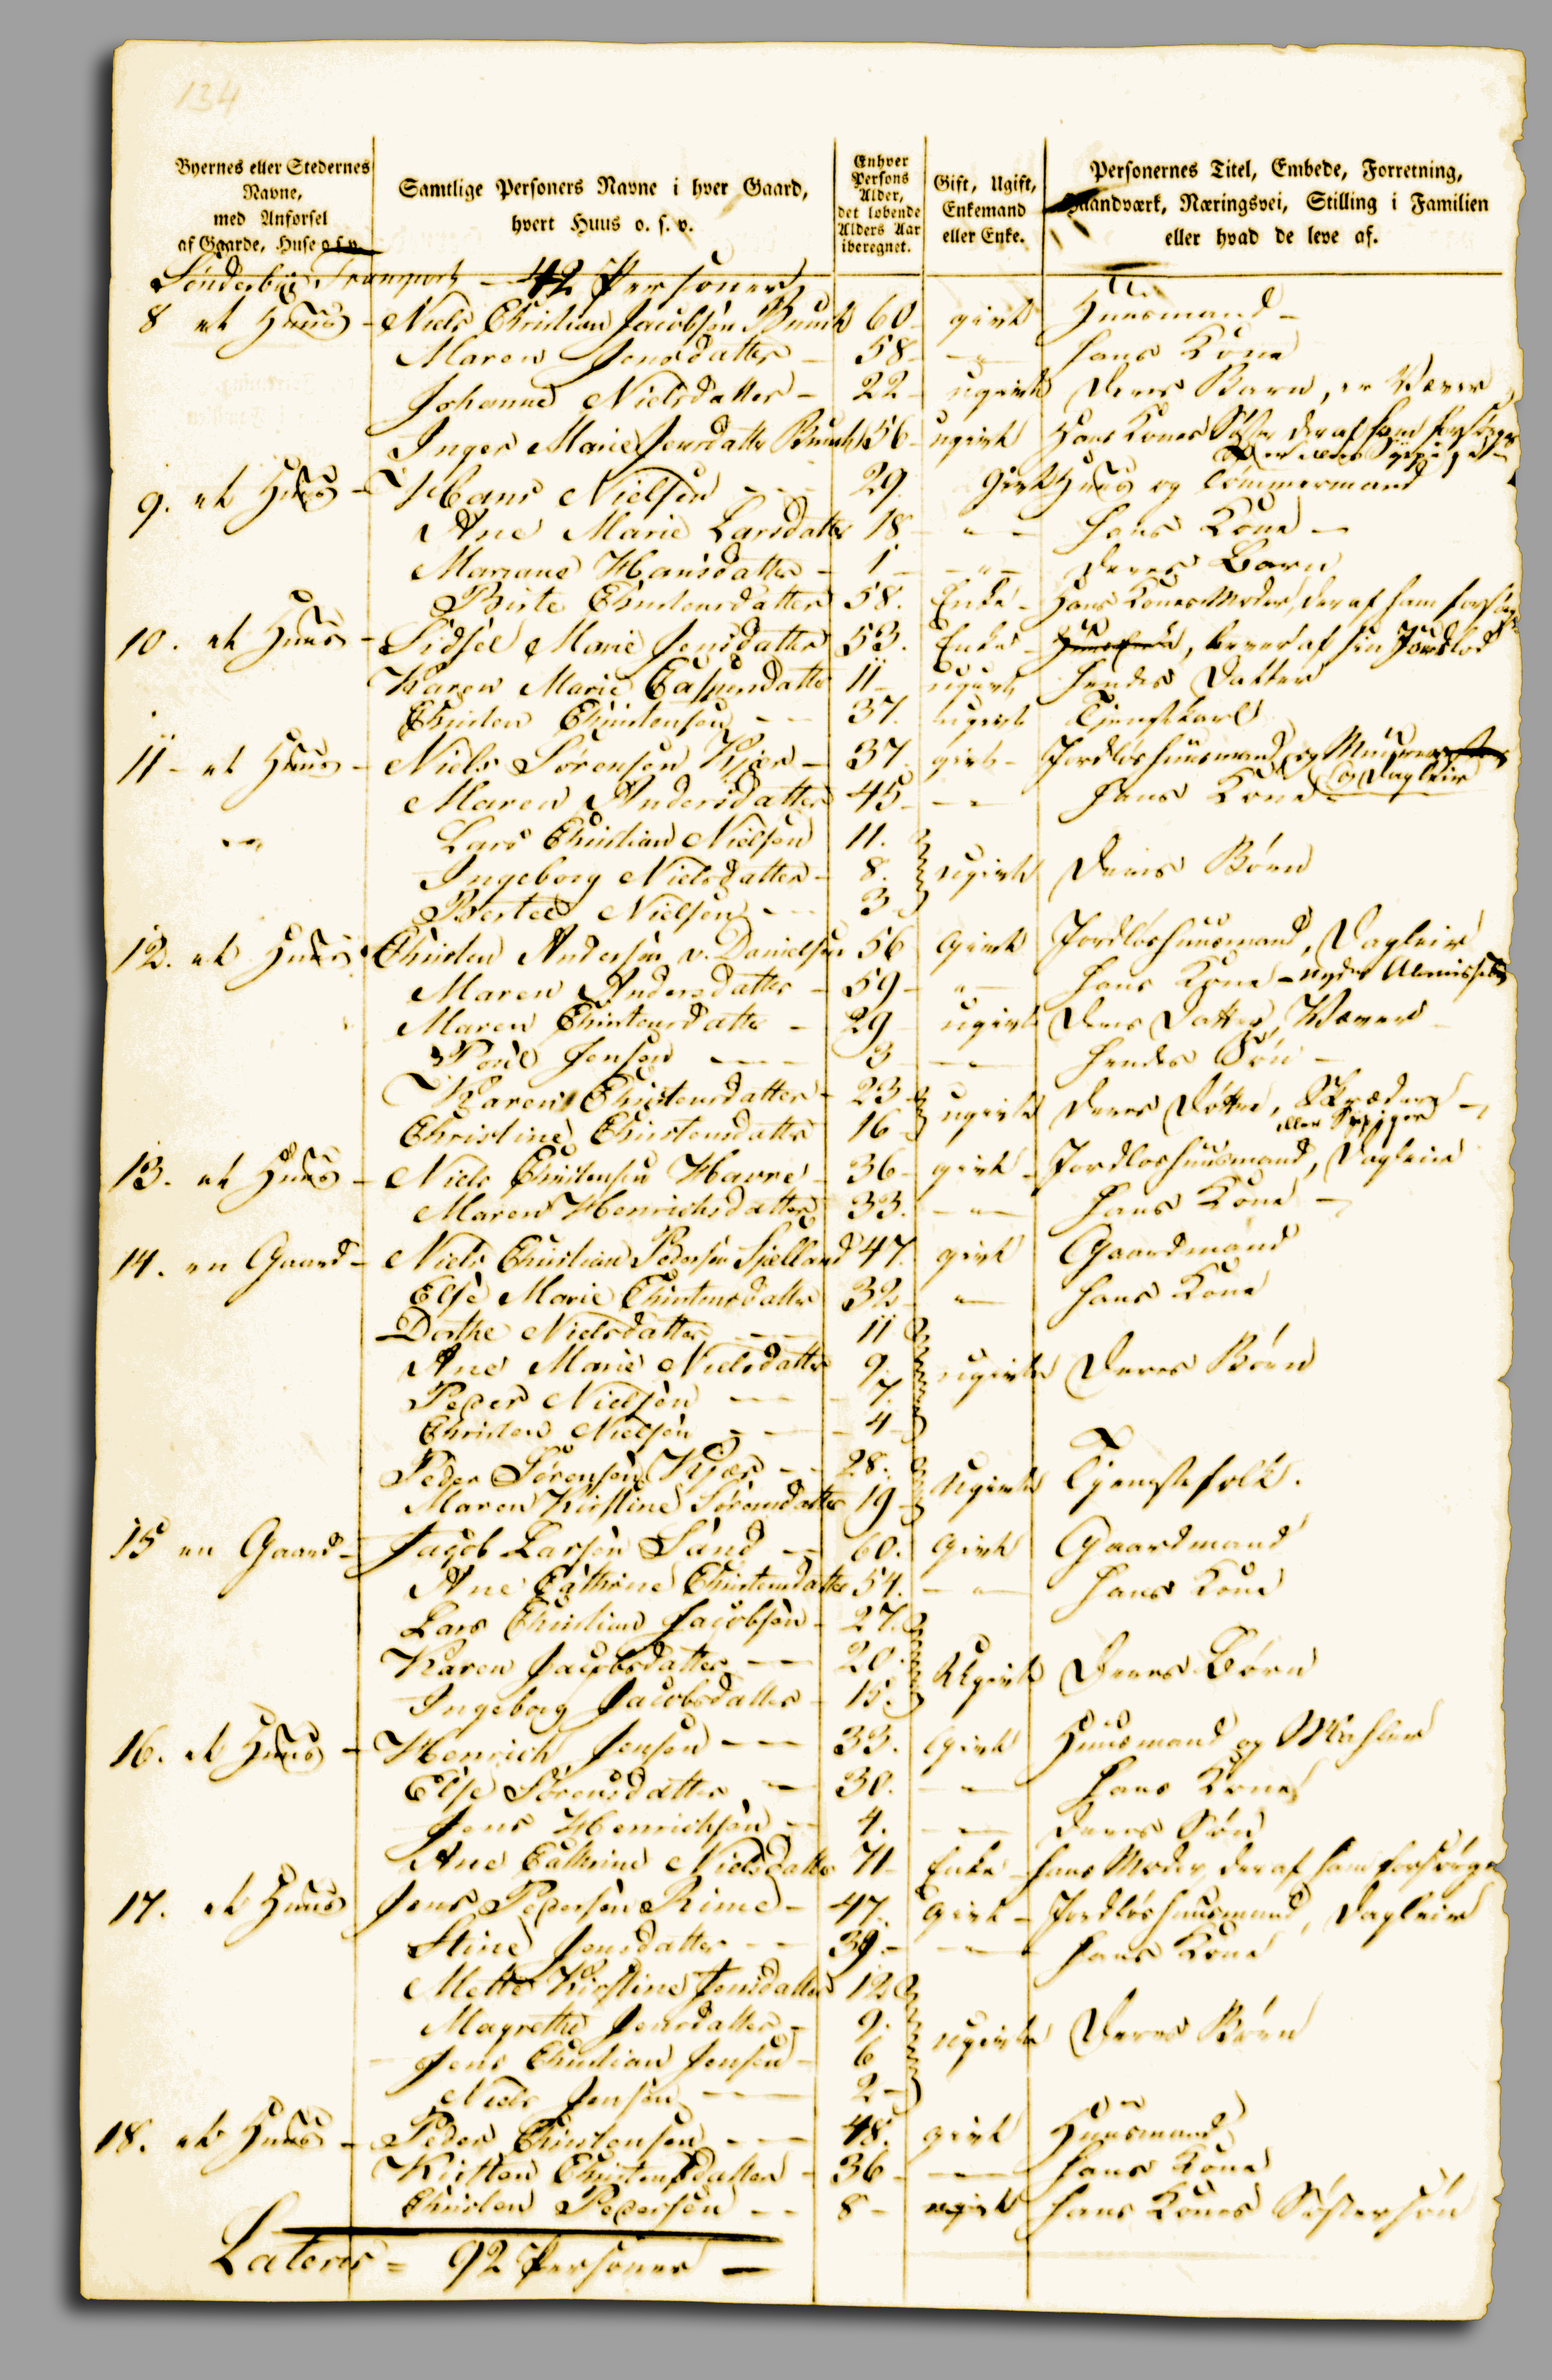 134
Byernes eller Stedernes Navne, med Anførsel af Gaarde, Huse o. s. v.
Samtlige Personers Navne i hver Gaard, hvert Huus o. s. v.
Enhver Persons Alder, det løbende Alders Aar iberegnet.
Gift, Ugift, Enkemand eller Enke.
Personernes Titel, Embede, Forretning, Haandværk, Næringsvei, Stilling i Familien eller hvad de leve af.
Sönderbÿe Transport - 42 Personer
8 et Huus - Niels Christian Jacobsen Bunch 60 givt Huusmand -
Maren Jensdatter - 58 - " - hans Kone
Johanne Nielsdatter - 22 - ugivt deres Barn, er Væver
Inger Marie Jensdatter Bunch 56 - ugivt Hans Kones Søster der af ham forsørges
9. et Huus - Hans Nielsen - 29 Givt Huus og Tömmermand
Ane Marie Larsdatter 18 - " - hans Kone -
Mariane Hansdatter - 1 - " - deres Barn
Birte Christensdatter 58. Enke - Hans Kones Moder, der af ham forsørges
10. et Huus - Sidsel Marie Jensdatter 53. Enke - lever af sin Jordlod
Karen Marie Caspersdatter 11 - ugivt hendes Datter
Christen Christensen - - 37. ugivt Tjenestkarl
11 - et Huus - Niels Sörensen Kjær - 37. givt - Jordløs huusmand, og Muurer
og Dagleier
Maren Andersdatter 45 - " - hans Kone -
Lars Christian Nielsen 11.
Ingeborg Nielsdatter - 8. ugivte deres Börn
Bertel Nielsen - 3
12. et Huus - Christen Andersen v. Danielsen 56 Givt Jordløshuusmand, Dagleier
Maren Andersdatter - 59 - " - hans Kone - nyder Almisse
Maren Christensdatter - 29 - ugivt deres Datter, Væver -
Poul Jensen - 3 - " - hendes Sön -
Karen Christensdatter - 23 ugivte deres Döttre, Skrædere -
eller Sypiger
Christine Christensdatter 16
13. et Huus - Niels Christensen Harre - 36 - givt - Jordløshuusmand, Dagleier
Maren Henrichsdatter 33. - " - hans Kone -
14. en Gaard - Niels Christian Pedersen Sjælland 47. givt Gaardmand
Else Marie Christensdatter 32 - " - hans Kone
Dorthe Nielsdatter - 11
Ane Marie Nielsdatter 9. ugivte deres Börn
Peder Nielsen - 7.
Christen Nielsen - 4
Peder Sörensen Kjær - 28. Ugivte Tjenestefolk.
Maren Kirstine Sörensdatter 19
15 en Gaard - Jacob Larsen Sand - 60. Givt Gaardmand
Ane Cathrine Christensdatter 54. - " - hans Kone
Lars Christian Jacobsen - 27.
Karen Jacobsdatter - 20. Ugivte deres Börn
Ingeborg Jacobsdatter - 15.
16. et Huus - Henrich Jensen - 33. Givt Huusmand og
Else Sörensdatter - 30. - " - hans Kone
Jens Henrichsen - 4. - " - deres Sön
Ane Cathrine Nielsdatter 71 - Enke - hans Moder, der af ham forsörges
17. et Huus Jens Pedersen Rime - 47. Givt - Jordløshuusmand, Dagleier
Stine Jensdatter - - 39. - " - hans Kone
Mette Kirstine Jensdatter 12
Magrethe Jensdatter - 9. ugivte deres Börn
Jens Christian Jensen - 6
Niels Jensen - 2 -
18. et Huus - Peder Christensen - 48. givt Huusmand
Kirsten Christensdatter - 36 - hans Kone
Christen Pedersen - - 8 - ugivt hans Kones Söstersön
Lateris = 92 Personer -